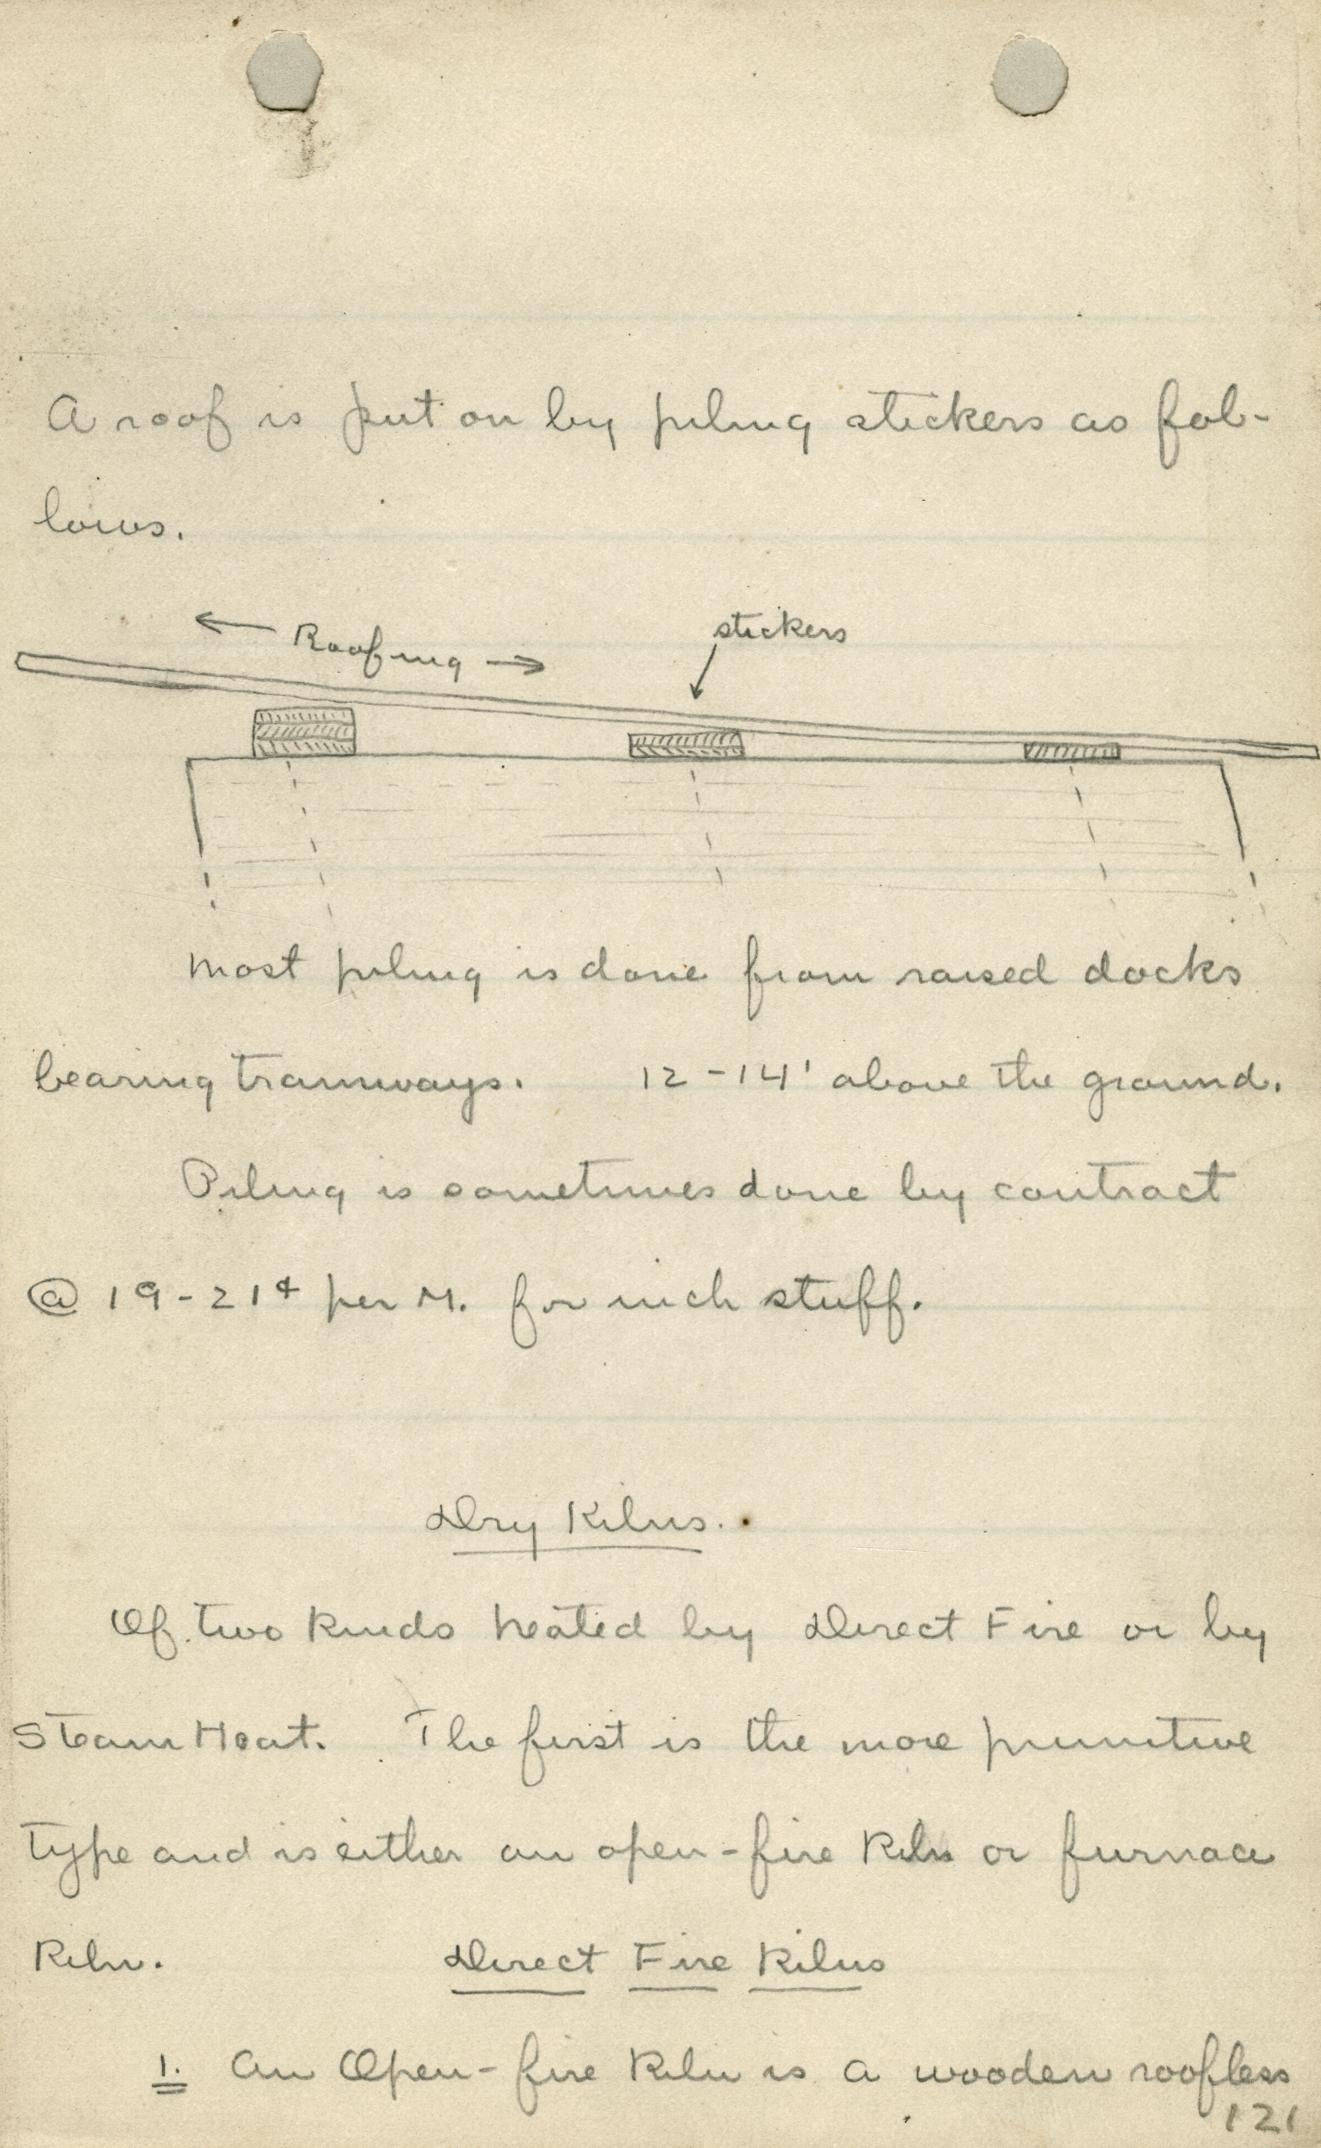 A roof is put on by piling stickers as fol-
lows.
← Roofing →
stickers
Most piling is done from raised docks
bearing tramways. 12-14' above the ground.
Piling is sometimes done by contract
@ 19-21¢ per M. for inch stuff.
Dry Kilns.
Of two kinds heated by Direct Fire or by
Steam Heat. The first is the more primitive
type and is either an open-fire kiln or furnace
Kiln.
Direct Fire Kilns
1. An Open-fire Kiln is a wooden roofless
121